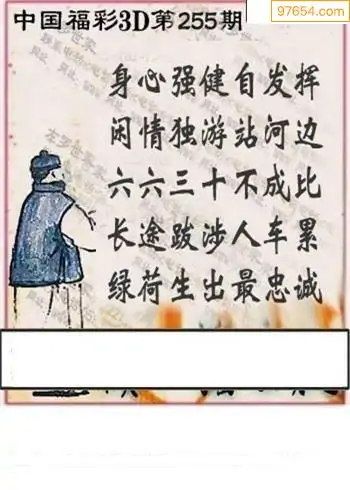 中国福彩3D第255期
97654.com
身心强健自发挥
闲情独游站河边
六六三十不成比
长途跋涉人车累
绿荷生出最忠诚